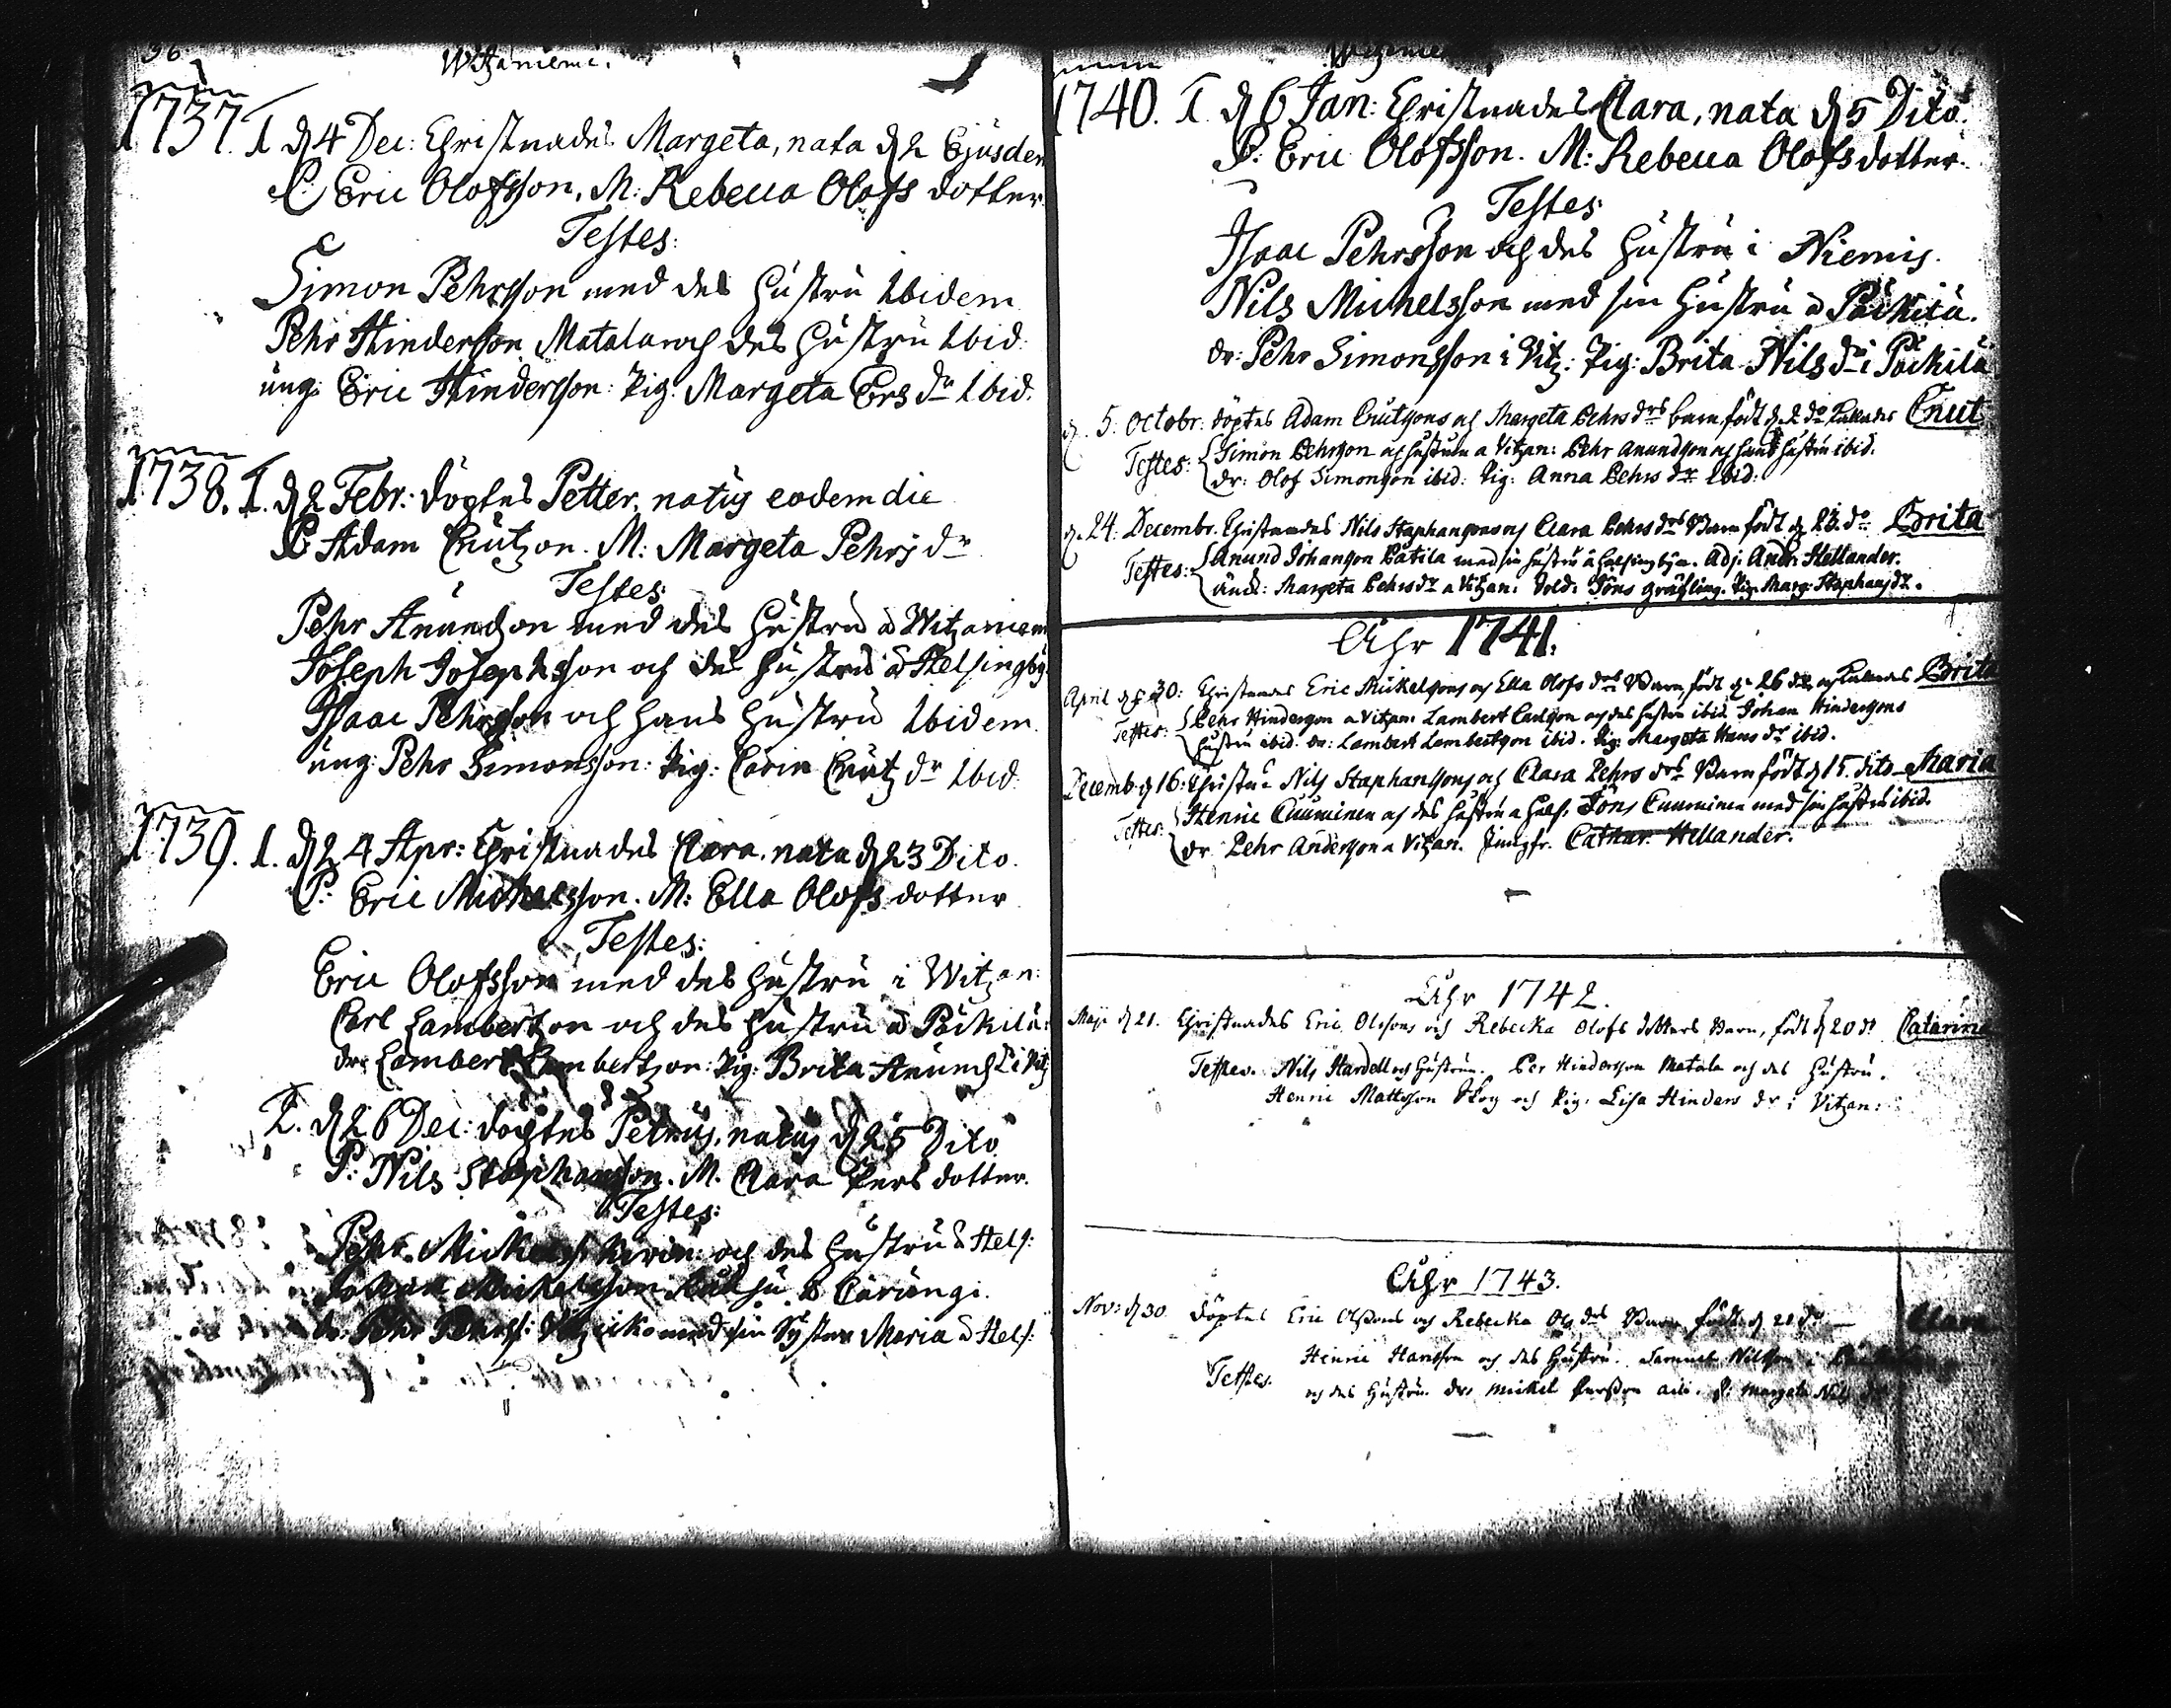 36.
Witzaniemi.
1737. 1. d. 4 Dec: Christnades Margeta, nata d. 2 Ejusdem
P. Eric Olofsson. M: Rebecca Olofs dotter
Testes:
Simon Pehrsson med des hustru Ibidem
Pehr Hindersson Matala och des hustru Ibid:
ung: Eric Hindersson: Pig: Margeta Ers dr Ibid.
1738. 1. d. 2 Febr: döptes Petter, natus eodem die
P Adam Cnutzon. M: Margeta Pehrs dr
Testes:
Pehr Anundzon med des hustru å Witzaniem
Joseph Josephsson och des hustru å Helsingby
Isaac Pehrsson och hans hustru Ibidem
ung: Pehr Simonsson: Pig: Carin Cnutz dr Ibid:
1739. 1. d. 24 Apr: Christnades Clara, nata d. 23 Dito.
P: Eric Michelsson. M: Ella Olofs dotter
Testes:
Eric Olofsson med des hustru i Witzan:
Carl Lambertzon och des hustru å Päckilä:
dr: Lambert Lambertzon: Pig: Brita Anunds
2. d. 26 Dec: döptes Petrus, natus d. 25 Dito
P: Nils Staphansson. M. Clara Pers dotter.
Testes:
Pehr och des hustru å Hels:
Michelsson å Carungi.
dr: Pehr med sin Syster Maria å Hels:
1740. 1. d. 6 Jan: Christnades Clara, nata d. 5 Dito.
P: Eric Olofsson. M: Rebecca Olofsdotter.
Testes:
Isaac Pehrsson och des hustru i Niemis.
Nils Michelsson med sin hustru å Päckilä.
dr: Pehr Simonsson i Vitz: Pig: Brita Nils dr i Päckilä
d. 5. Octobr: döptes Adam Cnutsons och Margeta Pehrs drs barn födt d. 2 do kallades Cnut
Testes: Simon Pehrsson och hustrun a Vitzan: Pehr Anundson och hans hustru ibid:
dr: Olof Simonson ibid: Pig: Anna Pehrs dr Ibid:
d. 24. Decembr. Christnades Nils Staphansons och Clara Pehrs drs Barn födt d. 23. do Brita
Testes: Anund Johanson Patila med sin hustru å Helsingbyn. Adj: Andr: Hellander.
Änck: Margeta Pehrs dr a Vitzan: Sold: Jöns Gräfling. Pig: Marg: Staphans dr.
Ahr 1741.
April d. 30: Christnades Eric Mickelsons och Ella Olofs drs Barn födt d. 26 och kallades Brita
Testes: Pehr Hinderson a Vitzan: Lambert Carlson och des hustru ibid. Johan Hindersons
hustru ibid. dr: Lambert Lambertson ibid. Pig: Margeta Hans dr ibid.
Decemb. d. 16: Nils Staphanssons och Clara Pehrs drs Barn födt d. 15. dito Maria
Testes: Henric Cuuminen och des hustru a Hels: Jöns Cuuminen med sin hustru ibid.
dr Pehr Anderson a Vitzan. Jungfr. Cathar: Hellander.
Ahr 1742.
Maji d. 21. Christnades Eric Olssons och Rebecka Olofs dotters Barn, födt d. 20 do Catarina
Testes. Nils Hardell och hustrun. Per Hindersson Matala och des hustru.
Henric Mattsson Skog och Pig. Lisa Hinders dr i Vitzan:
Ahr 1743.
Nov: d. 30 döptes Eric Olssons och Rebecka Ols drs Barn födt d. 28 do Clara
Testes. Henric Hansson och des hustru. Samuel Nilsson i
och des hustru. dr: Mickel Persson P: Margeta Nils dr